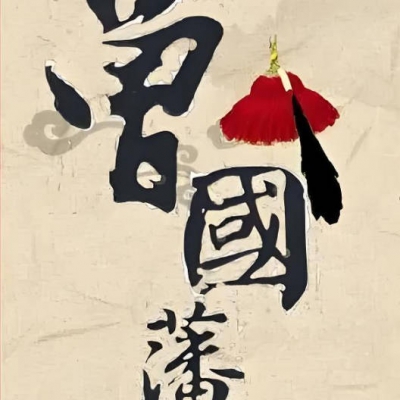 曾
國
藩